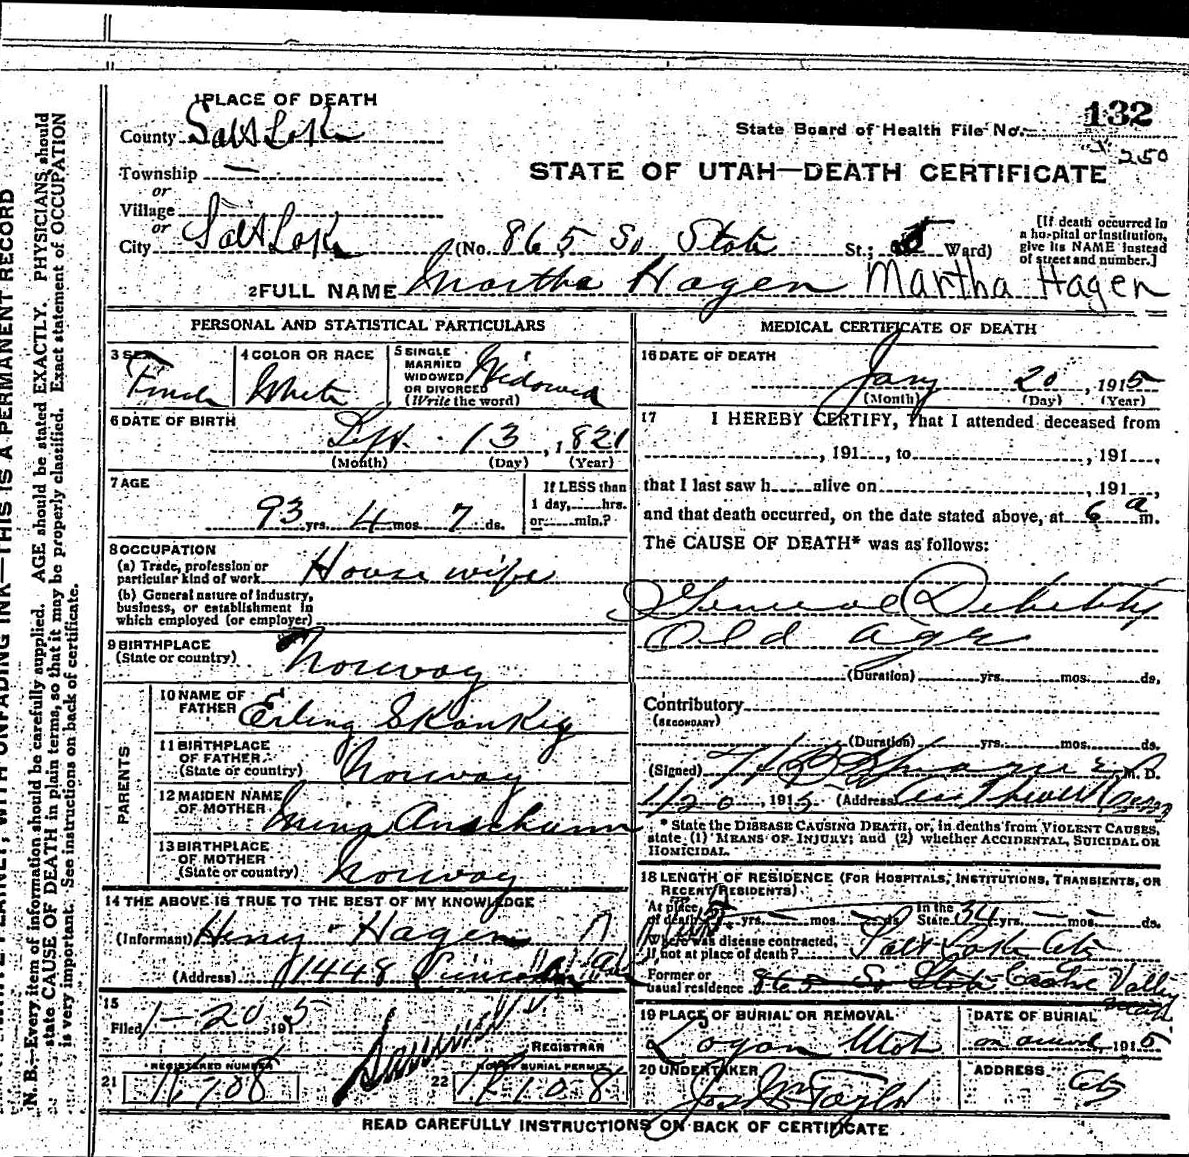 1 PLACE OF DEATH
County Salt Lake
State Board of Health File No. 132
250
Township —
or
STATE OF UTAH—DEATH CERTIFICATE
Village
or
City Salt Lake (No. 865 So State St.; 5 Ward)
[If death occurred in a hospital or institution, give its NAME instead of street and number.]
2 FULL NAME Martha Hagen Martha Hagen
PERSONAL AND STATISTICAL PARTICULARS
3 SEX
4 COLOR OR RACE White
5 SINGLE MARRIED WIDOWED OR DIVORCED (Write the word) Widowed
6 DATE OF BIRTH
Sept. 13, 1821
(Month) (Day) (Year)
7 AGE
93 yrs. 4 mos. 7 ds.
If LESS than 1 day, hrs. or min.?
8 OCCUPATION
(a) Trade, profession or particular kind of work House wife
(b) General nature of industry, business, or establishment in which employed (or employer)
9 BIRTHPLACE
(State or country) Norway
PARENTS
10 NAME OF FATHER Erling
11 BIRTHPLACE OF FATHER (State or country) Norway
12 MAIDEN NAME OF MOTHER
13 BIRTHPLACE OF MOTHER (State or country) Norway
14 THE ABOVE IS TRUE TO THE BEST OF MY KNOWLEDGE
(Informant) Henry Hagen
(Address) 1448
15
Filed 1-20, 1915
REGISTRAR
REGISTERED NUMBER
21
22 NO. OF BURIAL PERMIT
MEDICAL CERTIFICATE OF DEATH
16 DATE OF DEATH
Jany 20, 1915
(Month) (Day) (Year)
17 I HEREBY CERTIFY, That I attended deceased from
, 191 , to , 191 ,
that I last saw h alive on , 191 ,
and that death occurred, on the date stated above, at 6 a m.
The CAUSE OF DEATH* was as follows:
General Debility
Old age
(Duration) yrs. mos. ds.
Contributory
(SECONDARY)
(Duration) yrs. mos. ds.
(Signed) M. D.
1/20, 1915 (Address)
* State the DISEASE CAUSING DEATH, or, in deaths from VIOLENT CAUSES, state (1) MEANS OF INJURY; and (2) whether ACCIDENTAL, SUICIDAL OR HOMICIDAL.
18 LENGTH OF RESIDENCE (FOR HOSPITALS, INSTITUTIONS, TRANSIENTS, OR RECENT RESIDENTS)
At place of death yrs. mos. ds. In the State 34 yrs. — mos. — ds.
Where was disease contracted, If not at place of death? Salt Lake City
Former or usual residence 865 So State Cache Valley
19 PLACE OF BURIAL OR REMOVAL
Logan Utah
DATE OF BURIAL
1915
20 UNDERTAKER
Jos Taylor
ADDRESS
City
READ CAREFULLY INSTRUCTIONS ON BACK OF CERTIFICATE
N. B.—Every item of information should be carefully supplied. AGE should be stated EXACTLY. PHYSICIANS should
state CAUSE OF DEATH in plain terms, so that it may be properly classified. Exact statement of OCCUPATION
is very important. See instructions on back of certificate.
WITH UNFADING INK—THIS IS A PERMANENT RECORD